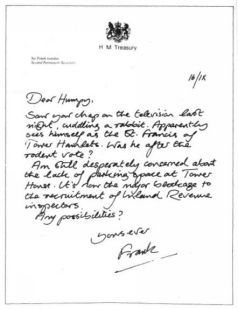 H M Treasury
Sir Frank Gordon
Second Permanent Secretary
16/IX
Dear Humpy,
Saw your chap on the television last
night, cuddling a rabbit. Apparently
sees himself as the St. Francis of
Tower Hamlets. Was he after the
rodent vote?
Am still desperately concerned about
the lack of parking space at Tower
House. It's now the major blockage to
the recruitment of Inland Revenue
inspectors.
Any possibilities?
Yours ever
Frank